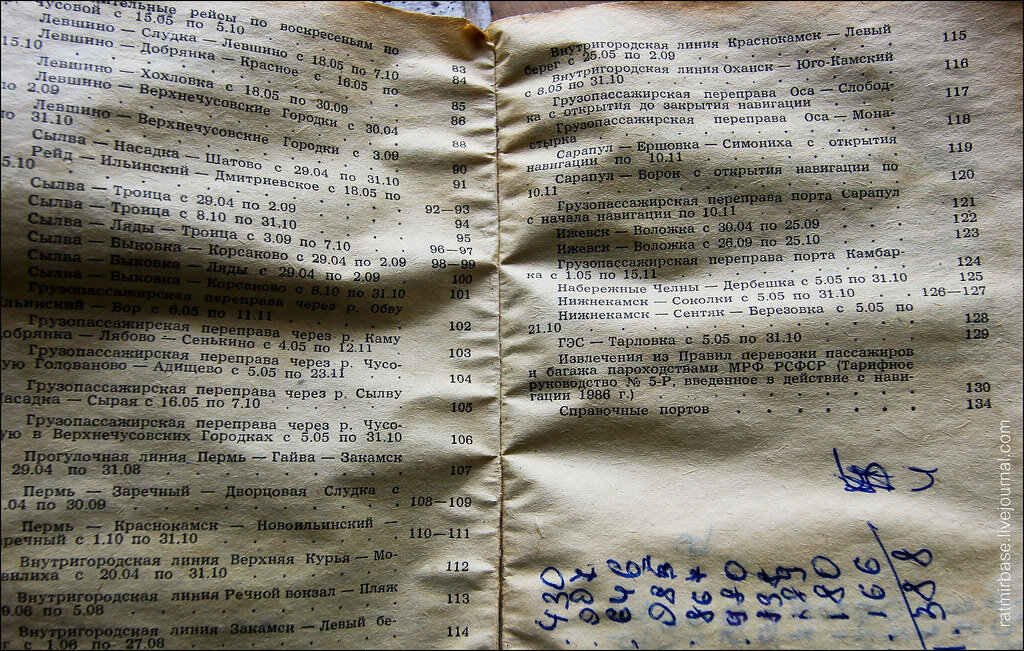 ительные рейсы по воскресеньям по
чусовой с 15.05 по 5.10
Левшино — Слудка — Левшино с 18.05 по 7.10 83
Левшино — Добрянка — Красное с 16.05 по
15.10 84
Левшино — Хохловка с 18.05 по 30.09 85
Левшино — Верхнечусовские Городки с 30.04
по 2.09 86
Левшино — Верхнечусовские Городки с 3.09
по 31.10 88
Сылва — Насадка — Шатово с 29.04 по 31.10 90
Рейд — Ильинский — Дмитриевское с 18.05 по
5.10 91
Сылва — Троица с 29.04 по 2.09 92—93
Сылва — Троица с 8.10 по 31.10 94
Сылва — Ляды — Троица с 3.09 по 7.10 95
Сылва — Выковка — Корсаково с 29.04 по 2.09 96—97
Сылва — Выковка — Ляды с 29.04 по 2.09 98—99
Сылва — Выковка — Корсаково с 8.10 по 31.10 100
Грузопассажирская переправа через р. Обву 101
льинский — Вор с 6.05 по 11.11
Грузопассажирская переправа через р. Каму 102
обрянка — Лябово — Сенькино с 4.05 по 12.11
Грузопассажирская переправа через р. Чусо- 103
ую Голованово — Адищево с 5.05 по 23.11
Грузопассажирская переправа через р. Сылву 104
асадка — Сырая с 16.05 по 7.10 105
Грузопассажирская переправа через р. Чусо-
ую в Верхнечусовских Городках с 5.05 по 31.10 106
Прогулочная линия Пермь — Гайва — Закамск
29.04 по 31.08 107
Пермь — Заречный — Дворцовая Слудка с
.04 по 30.09 108—109
Пермь — Краснокамск — Новоильинский —
аречный с 1.10 по 31.10 110—111
Внутригородская линия Верхняя Курья — Мо-
вилиха с 20.04 по 31.10 112
Внутригородская линия Речной вокзал — Пляж
9.06 по 5.08 113
Внутригородская линия Закамск — Левый бе-
г с 1.06 по 27.08 114
Внутригородская линия Краснокамск — Левый
берег с 25.05 по 2.09 115
Внутригородская линия Оханск — Юго-Камский
с 8.05 по 31.10 116
Грузопассажирская переправа Оса — Слобод-
ка с открытия до закрытия навигации 117
Грузопассажирская переправа Оса — Мона-
стырка 118
Сарапул — Ершовка — Симониха с открытия
навигации по 10.11 119
Сарапул — Ворок с открытия навигации по
10.11 120
Грузопассажирская переправа порта Сарапул
с начала навигации по 10.11 121
Ижевск — Воложка с 30.04 по 25.09 122
Ижевск — Воложка с 26.09 по 25.10 123
Грузопассажирская переправа порта Камбар-
ка с 1.05 по 15.11 124
Набережные Челны — Дербешка с 5.05 по 31.10 125
Нижнекамск — Соколки с 5.05 по 31.10 126—127
Нижнекамск — Сентяк — Березовка с 5.05 по
21.10 128
ГЭС — Тарловка с 5.05 по 31.10 129
Извлечения из Правил перевозки пассажиров
и багажа пароходствами МРФ РСФСР (Тарифное
руководство № 5-Р, введенное в действие с нави-
гации 1986 г.) 130
Справочные портов 134
430
646
985
867
970
180
166
388
ratmirbase.livejournal.com